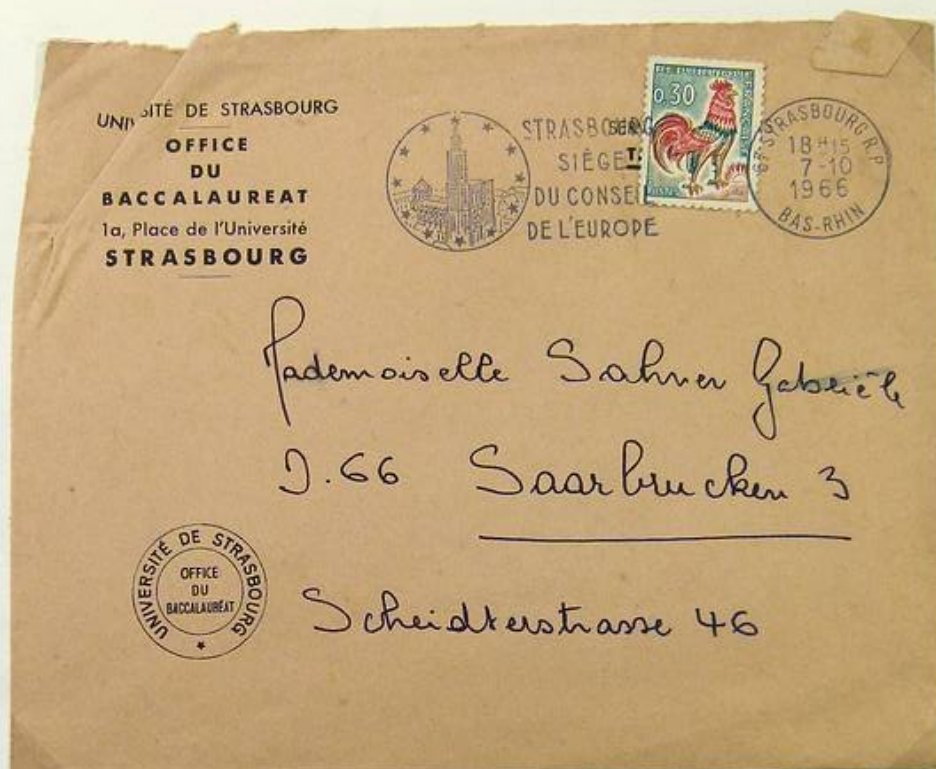 UNIVERSITÉ DE STRASBOURG
OFFICE
DU
BACCALAUREAT
1a, Place de l'Université
STRASBOURG
STRASBOURG
SIÈGE
DU CONSEIL
DE L'EUROPE
0.30
67 STRASBOURG R.P
18H15
7-10
1966
BAS-RHIN
Mademoiselle Sahner Gabrièle
D.66 Saarbrucken 3
Scheidterstrasse 46
UNIVERSITÉ DE STRASBOURG
OFFICE
DU
BACCALAURÉAT